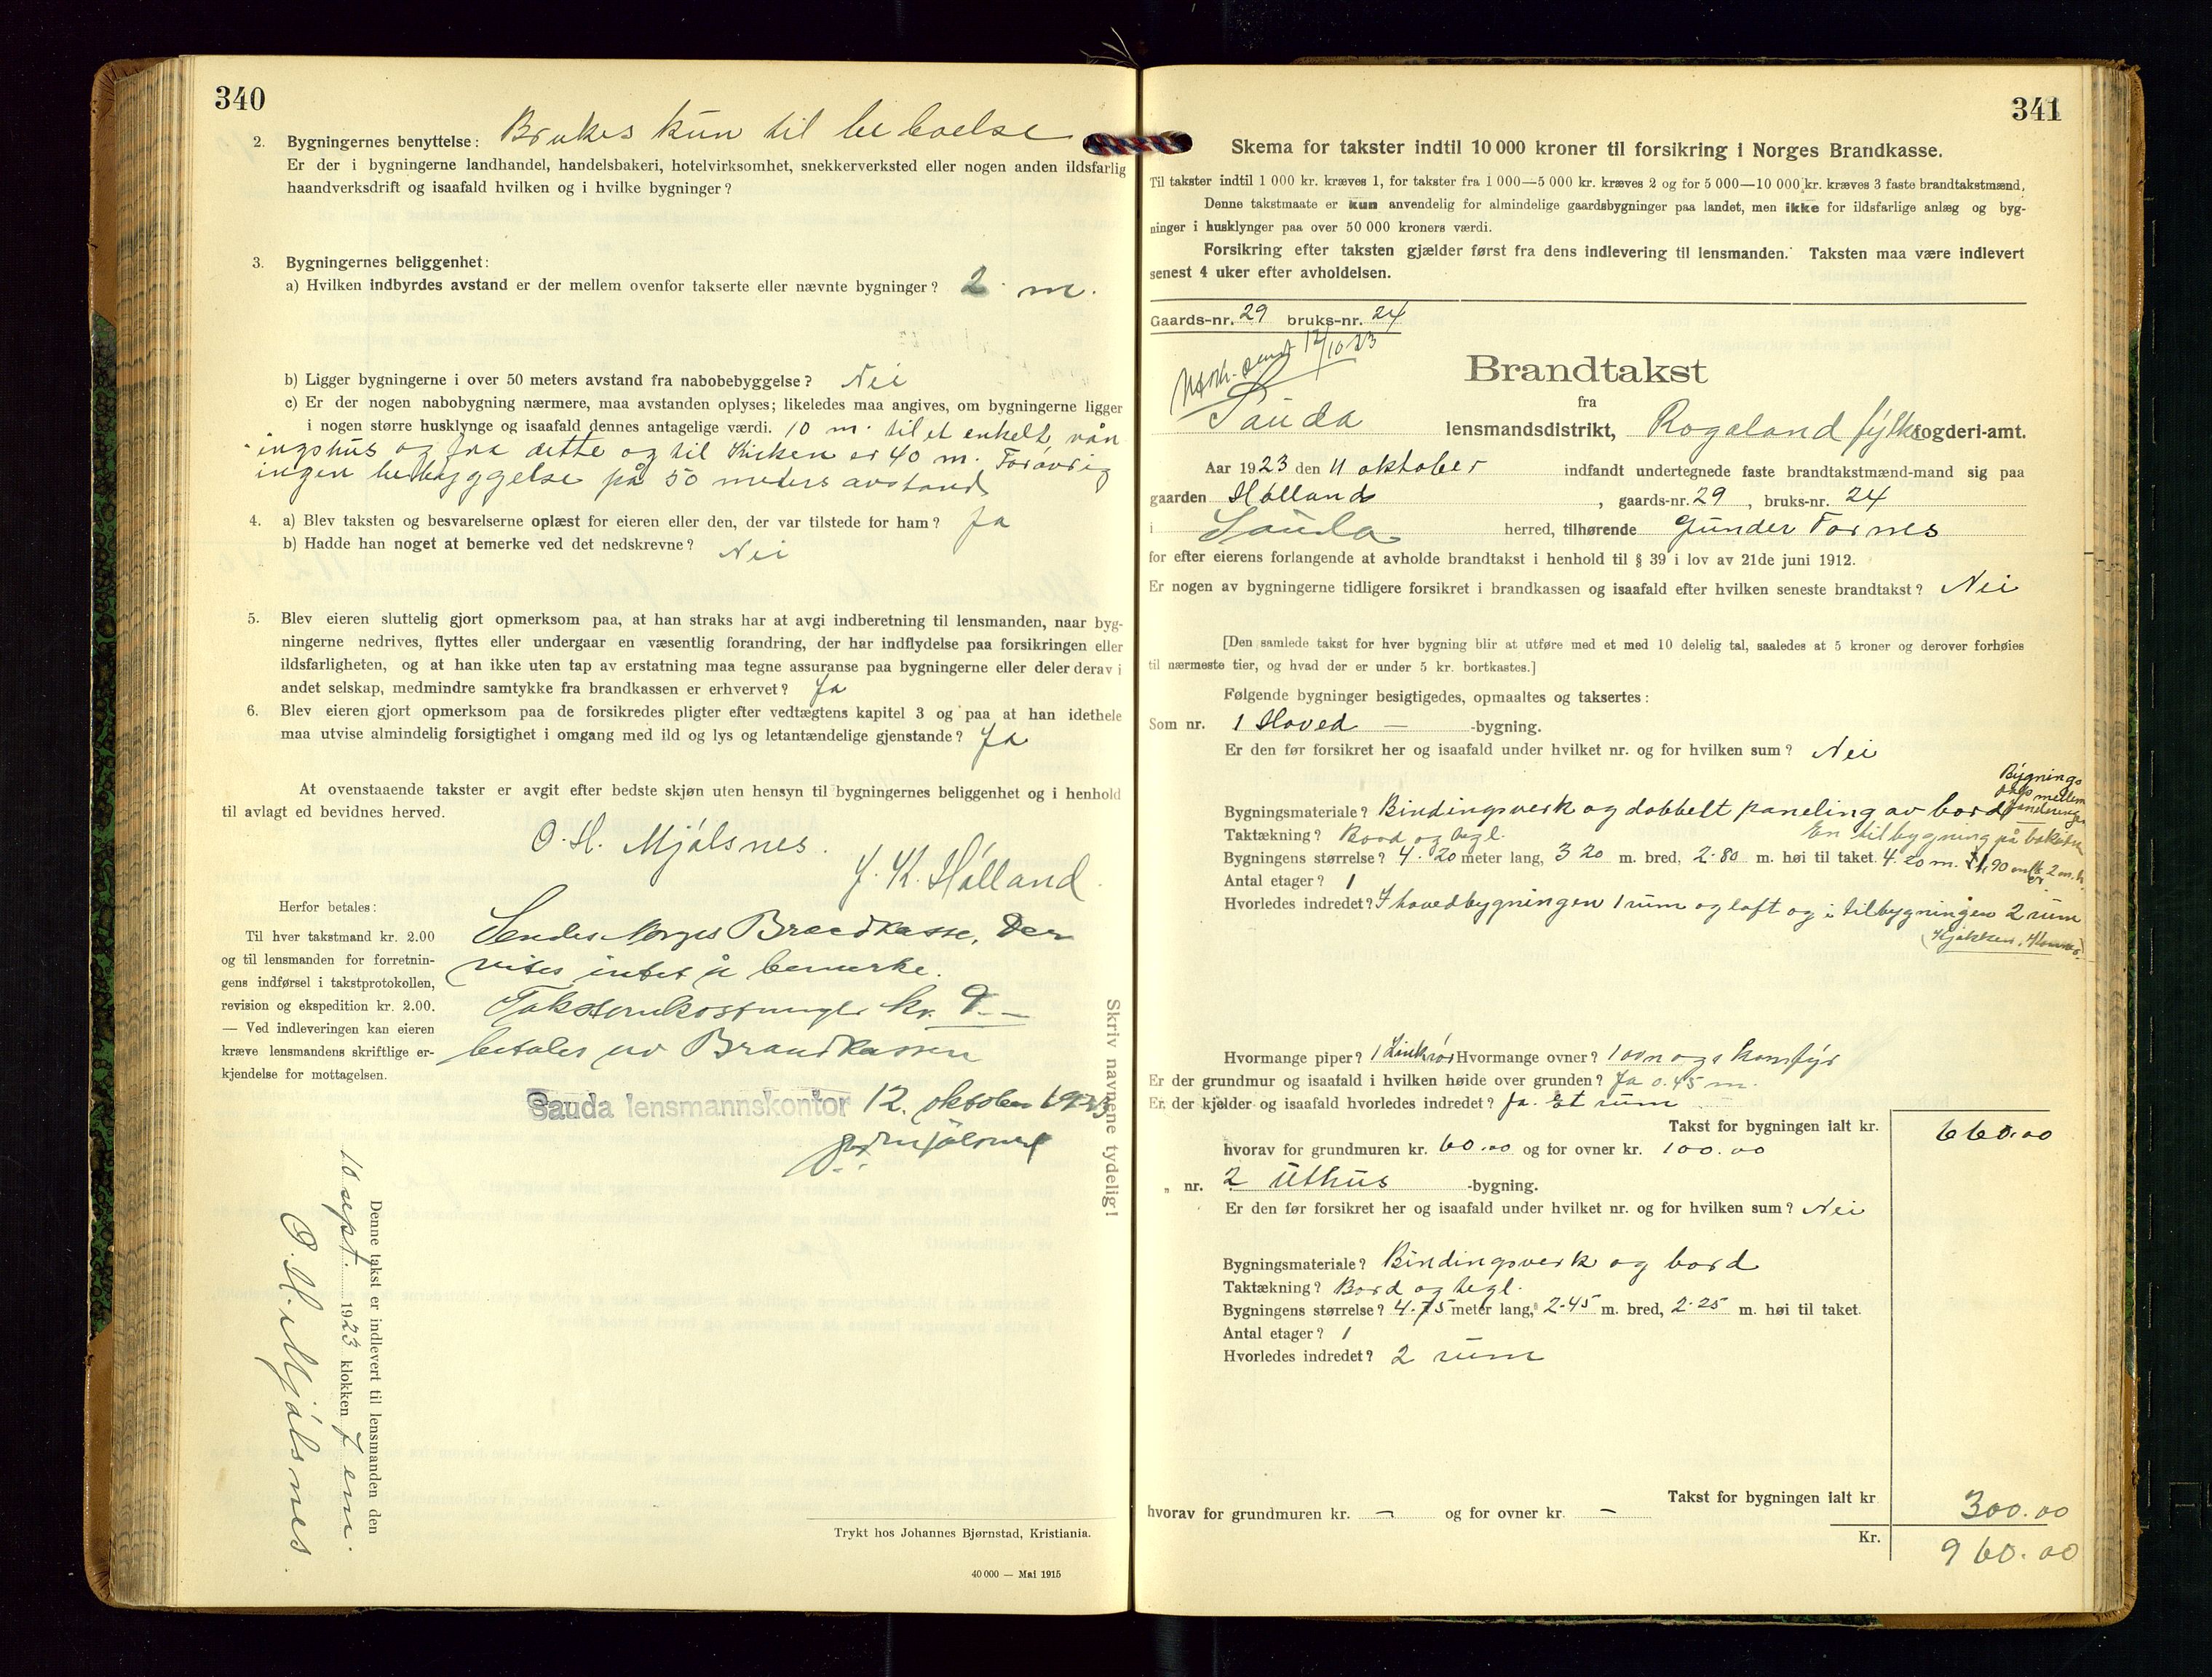 340
2. Bygningernes benyttelse: Brukes kun til beboelse
Er der i bygningerne landhandel, handelsbakeri, hotelvirksomhet, snekkerverksted eller nogen anden ildsfarlig
haandverksdrift og isaafald hvilken og i hvilke bygninger?
3. Bygningernes beliggenhet:
a) Hvilken indbyrdes avstand er der mellem ovenfor takserte eller nævnte bygninger? 2 m.
b) Ligger bygningerne i over 50 meters avstand fra nabobebyggelse? Nei
c) Er der nogen nabobygning nærmere, maa avstanden oplyses; likeledes maa angives, om bygningerne ligger
i nogen større husklynge og isaafald dennes antagelige værdi. 10 m. til et enkelt vån
ingshus og fra dette og til Kirken er 40 m. Forøvrig
ingen bebyggelse på 50 meters avstand
4. a) Blev taksten og besvarelserne oplæst for eieren eller den, der var tilstede for ham? Ja
b) Hadde han noget at bemerke ved det nedskrevne? Nei
5. Blev eieren sluttelig gjort opmerksom paa, at han straks har at avgi indberetning til lensmanden, naar byg-
ningerne nedrives, flyttes eller undergaar en væsentlig forandring, der har indflydelse paa forsikringen eller
ildsfarligheten, og at han ikke uten tap av erstatning maa tegne assuranse paa bygningerne eller deler derav i
andet selskap, medmindre samtykke fra brandkassen er erhvervet? Ja
6. Blev eieren gjort opmerksom paa de forsikredes pligter efter vedtægtens kapitel 3 og paa at han idethele
maa utvise almindelig forsigtighet i omgang med ild og lys og letantændelige gjenstande? Ja
At ovenstaaende takster er avgit efter bedste skjøn uten hensyn til bygningernes beliggenhet og i henhold
til avlagt ed bevidnes herved.
O. H. Mjølsnes. J. K. Hølland.
Herfor betales:
Til hver takstmand kr. 2.00
og til lensmanden for forretnin-
gens indførsel i takstprotokollen,
revision og ekspedition kr. 2.00.
— Ved indleveringen kan eieren
kræve lensmandens skriftlige er-
kjendelse for mottagelsen.
Sendes Norges Brandkasse. Der
vites intet å bemerke.
Takstomkostninger kr. 9.—
betales av Brandkassen
Sauda lensmannskontor 12. oktober 1923
Skriv navnene tydelig!
Denne takst er indlevert til lensmanden den
10 sept. 1923 klokken 7 em.
O. H. Mjølsnes.
Trykt hos Johannes Bjørnstad, Kristiania.
40 000 — Mai 1915
341
Skema for takster indtil 10 000 kroner til forsikring i Norges Brandkasse.
Til takster indtil 1 000 kr. kræves 1, for takster fra 1 000—5 000 kr. kræves 2 og for 5 000—10 000 kr. kræves 3 faste brandtakstmænd.
Denne takstmaate er kun anvendelig for almindelige gaardsbygninger paa landet, men ikke for ildsfarlige anlæg og byg-
ninger i husklynger paa over 50 000 kroners værdi.
Forsikring efter taksten gjælder først fra dens indlevering til lensmanden. Taksten maa være indlevert
senest 4 uker efter avholdelsen.
Gaards-nr. 29 bruks-nr. 24
sendt 12/10 23
Brandtakst
fra
Sauda lensmandsdistrikt, Rogaland fylke fogderi-amt.
Aar 1923 den 11 oktober indfandt undertegnede faste brandtakstmænd-mand sig paa
gaarden Hølland, gaards-nr. 29, bruks-nr. 24
i Sauda herred, tilhørende Gunder Fornes
for efter eierens forlangende at avholde brandtakst i henhold til § 39 i lov av 21de juni 1912.
Er nogen av bygningerne tidligere forsikret i brandkassen og isaafald efter hvilken seneste brandtakst? Nei
[Den samlede takst for hver bygning blir at utføre med et med 10 delelig tal, saaledes at 5 kroner og derover forhøies
til nærmeste tier, og hvad der er under 5 kr. bortkastes.]
Følgende bygninger besigtigedes, opmaaltes og taksertes:
Som nr. 1 Hoved — -bygning.
Er den før forsikret her og isaafald under hvilket nr. og for hvilken sum? Nei
Bygnings
mellem
Bygningsmateriale? Bindingsverk og dobbelt paneling av bord
Taktækning? Bord og tegl. En tilbygning på baksiden
Bygningens størrelse? 4.20 meter lang, 3 20 m. bred, 2.80 m. høi til taket. 4.20 m.
Antal etager? 1
Hvorledes indredet? I hovedbygningen 1 rum og loft og i tilbygningen 2 rum
Hvormange piper? 1 Zinkrør Hvormange ovner? 1 ovn og 1 komfyr
Er der grundmur og isaafald i hvilken høide over grunden? Ja 0.45 m.
Er der kjelder og isaafald hvorledes indredet? Ja. Et rum
Takst for bygningen ialt kr. 660.00
hvorav for grundmuren kr. 60.00 og for ovner kr. 100.00
„ nr. 2 Uthus -bygning.
Er den før forsikret her og isaafald under hvilket nr. og for hvilken sum? Nei
Bygningsmateriale? Bindingsverk og bord
Taktækning? Bord og tegl.
Bygningens størrelse? 4.75 meter lang, 2.45 m. bred, 2.25 m. høi til taket.
Antal etager? 1
Hvorledes indredet? 2 rum
Takst for bygningen ialt kr 300.00
hvorav for grundmuren kr. — og for ovner kr. —
Kr. 960.00